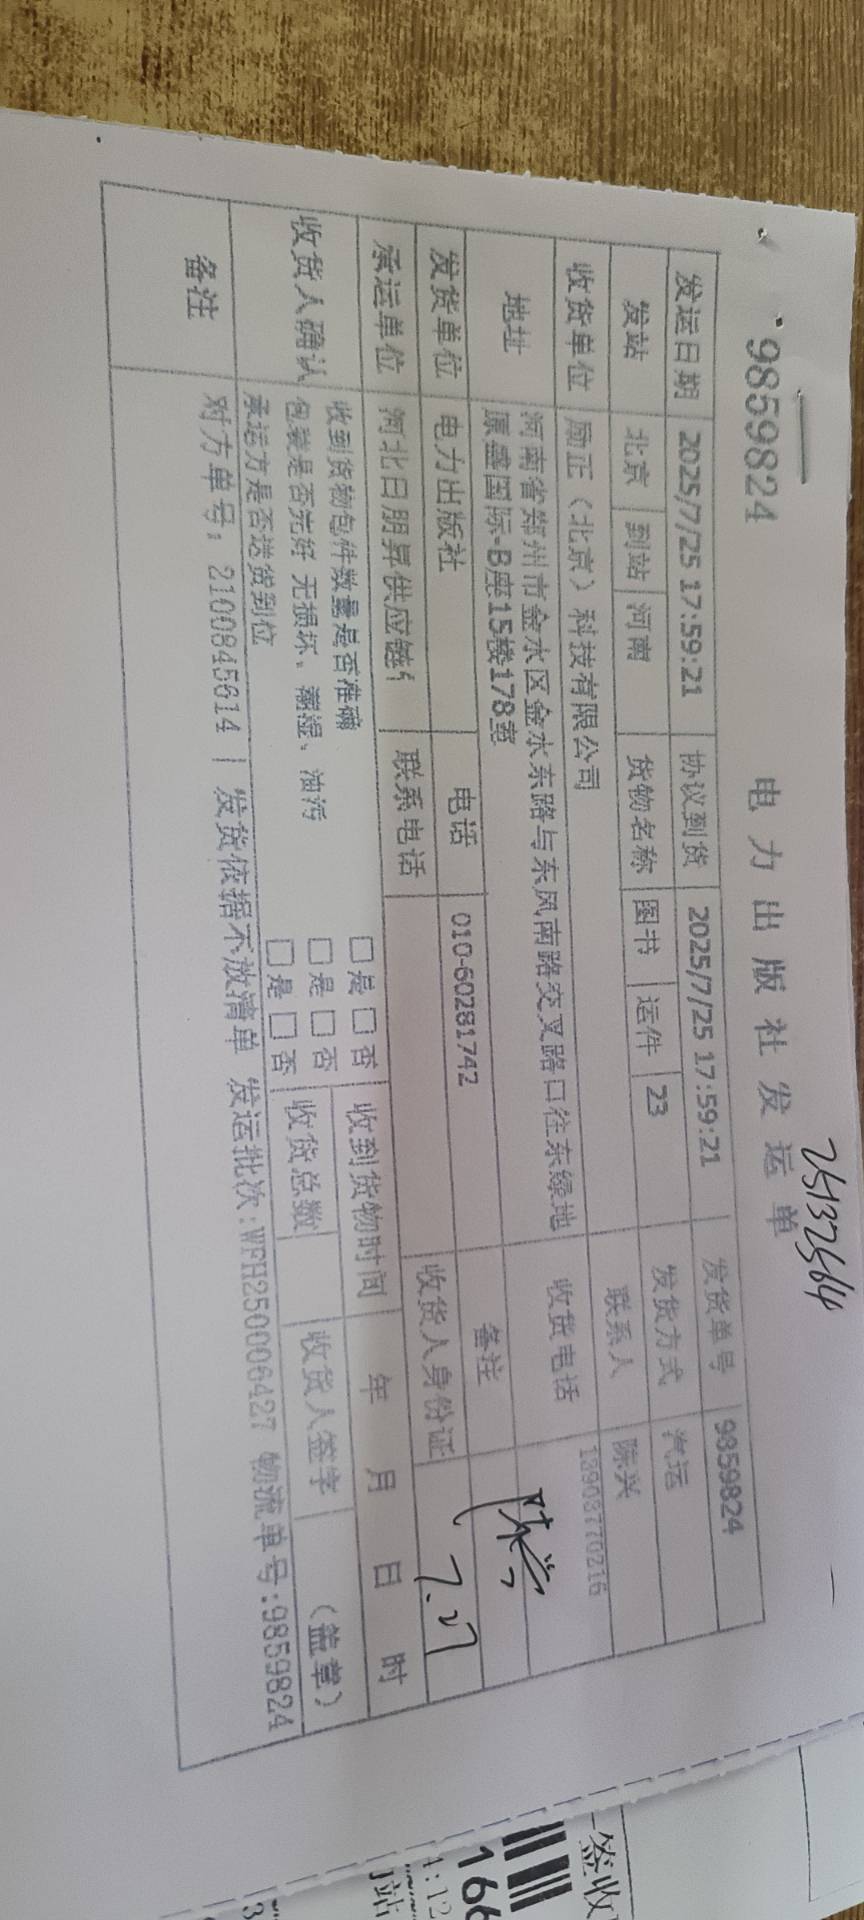 25132564
9859824
电力出版社发运单
发运日期 2025/7/25 17:59:21 协议到货 2025/7/25 17:59:21 发货单号 9859824
发站 北京 到站 河南 货物名称 图书 运件 23 发货方式 汽运
收货单位 励正（北京）科技有限公司 联系人 陈兴
地址 河南省郑州市金水区金水东路与东风南路交叉路口往东绿地 收货电话 18903770216
原盛国际-B座15楼178室
发货单位 电力出版社 电话 010-60281742 备注
承运单位 河北日朋昇供应链 联系电话 收货人身份证
7.27
收货人确认 收到货物包件数量是否准确 □是 □否 收到货物时间 年 月 日 时
包装是否完好 无损坏、潮湿、油污 □是 □否 收货总数 收货人签字 （盖章）
承运方是否送货到位 □是 □否
备注 对方单号：2100845614 | 发货依据不放清单 发运批次:WFH250006427 物流单号:9859824
签收
166
4:12
站